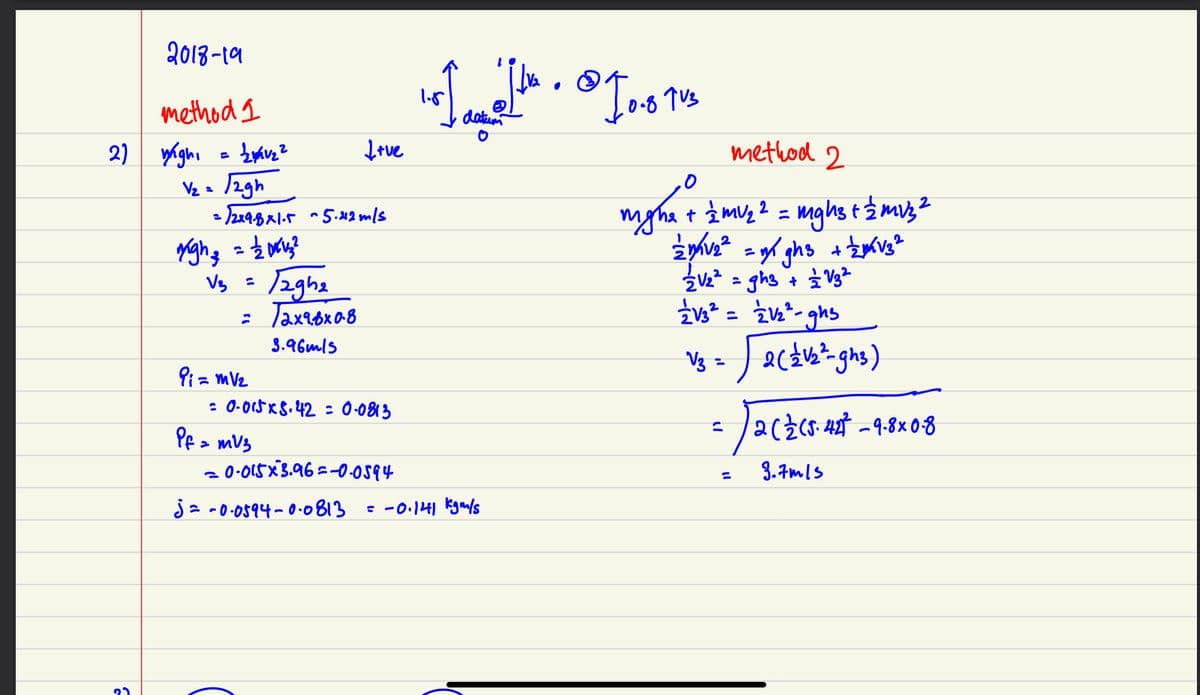 2018-19
method 1
1.5
datum
0
1
2
↓V2
3
0.8 ↑V3
2) mgh1 = ½mv2² ↓+ve
V2 = √2gh
= √2x9.8x1.5 ~5.42 m/s
mgh3 = ½mv3²
V3 = √2gh2
= √2x9.8x0.8
3.96m/s
Pi = mV2
= 0.015 x 5.42 = 0.0813
Pf = mV3
= 0.015 x -3.96 = -0.0594
j = -0.0594 - 0.0813 = -0.141 kgm/s
method 2
0
mgh2 + ½mv2² = mgh3 + ½mv3²
½mv2² = mgh3 + ½mv3²
½v2² = gh3 + ½v3²
½v3² = ½v2² - gh3
V3 = √2(½v2² - gh3)
= √2(½(5.42)² - 9.8x0.8
= 3.7m/s